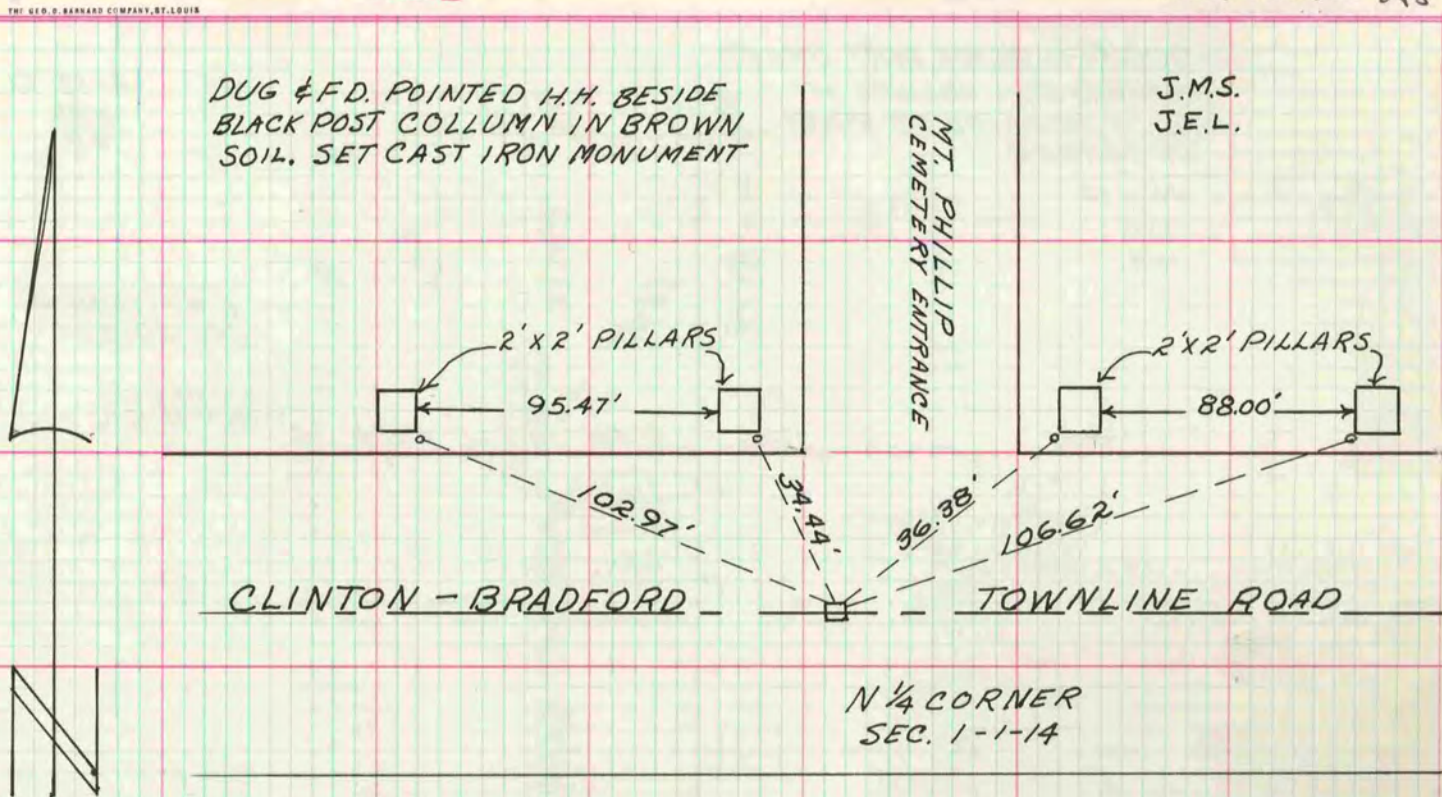 THE GEO. D. BARNARD COMPANY, ST. LOUIS
DUG & FD. POINTED H.H. BESIDE
BLACK POST COLLUMN IN BROWN
SOIL. SET CAST IRON MONUMENT
J.M.S.
J.E.L.
MT. PHILLIP
CEMETERY ENTRANCE
2'x2' PILLARS
2'x2' PILLARS
95.47'
88.00'
102.97'
34.44'
36.38'
106.62'
CLINTON - BRADFORD TOWNLINE ROAD
N 1/4 CORNER
SEC. 1-1-14
N